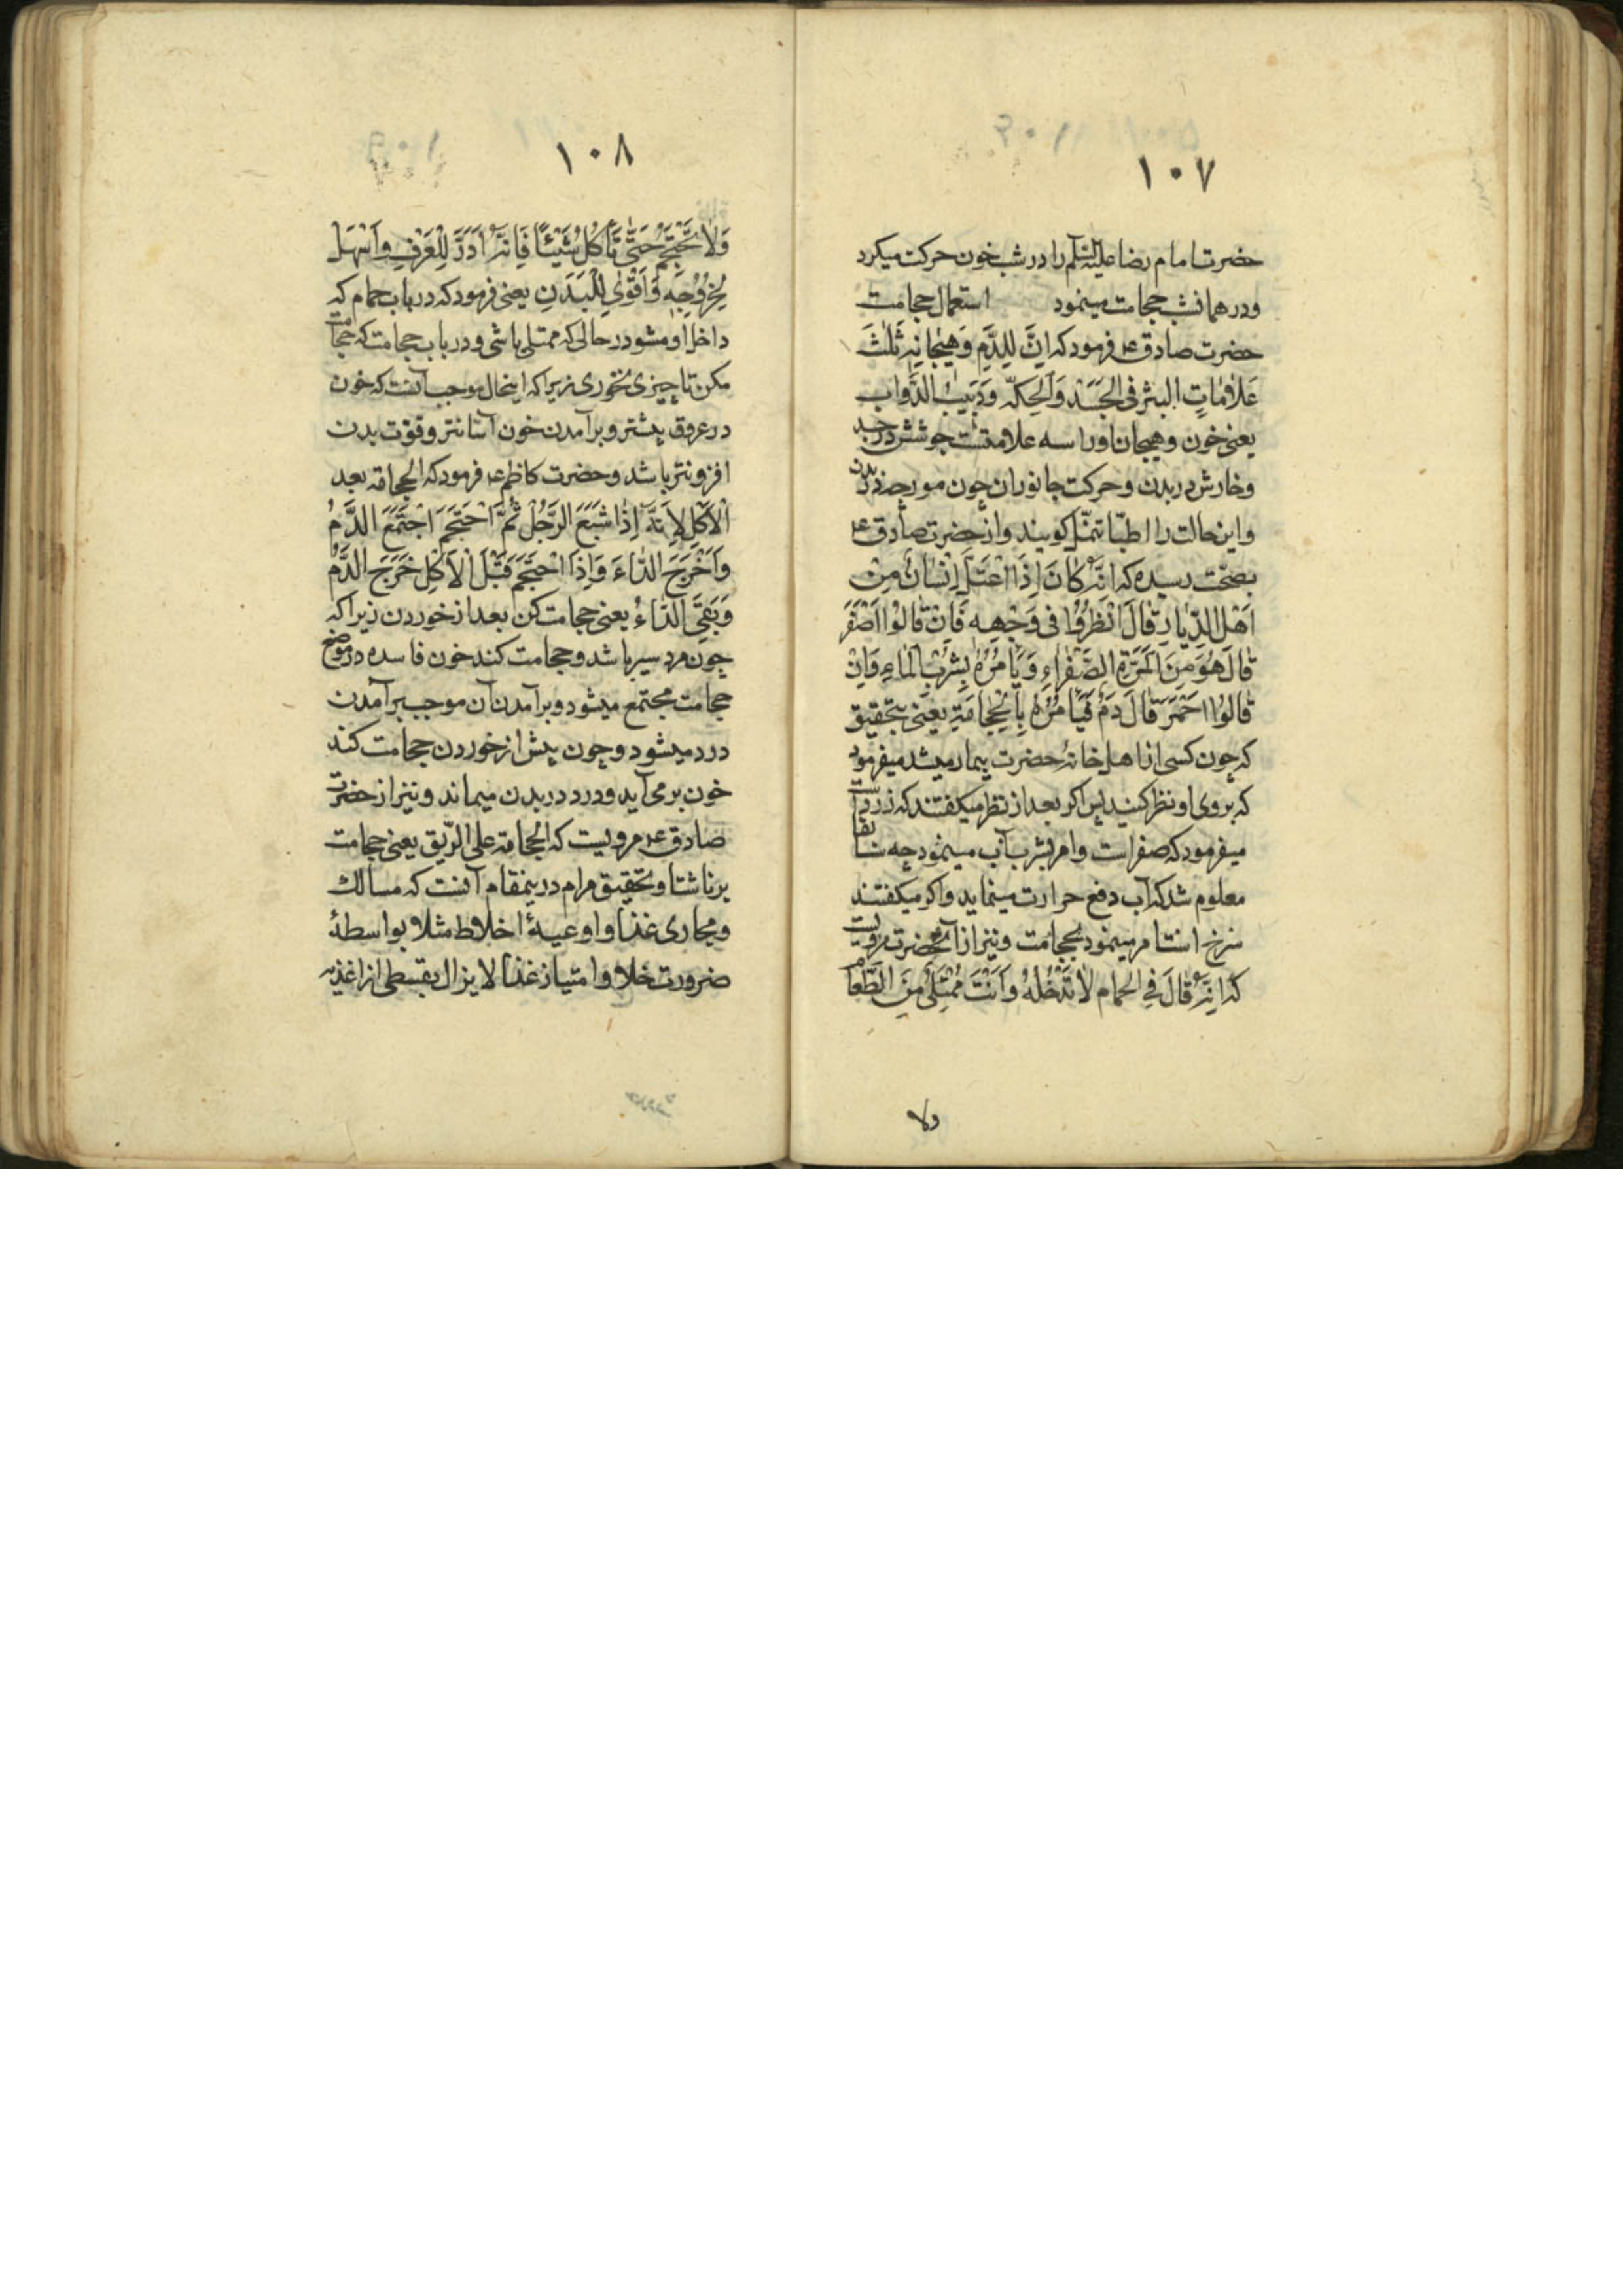 ١٠٧
حضرت امام رضا علیه السلم را در شب خون حرکت میکرد
ودر همانشب حجامت مینمود استعمال حجامت
حضرت صادق ع فرمود که اِنَّ لِلدَّمِ وَهَیَجانِهِ ثَلٰثَ
عَلاٰمٰاتٍ البثر فی الجَسَد وَالحِکّه وَدَبیبُ الدَّواب
یعنی خون وهیجان اورا سه علامتست جوشش در جسد
وخارش در بدن وحرکت جانوران چون مورچه در بدن
واین حالت را اطبّا تنمّل کویند واز حضرت صادق ع
بصحّت رسیده که اِنَّهُ کٰانَ اِذَا اعْتَلَّ اِنْسٰانٌ مِنْ
اَهْلِ الدّیٰارِ قٰالَ انْظُرُوْا فی وَجْهِهِ فَاِنْ قٰالُوْا اَصْفَرَ
قٰالَ هُوَ مِنَ المَرَّةِ الصَّفْرٰاءِ وَیَأمُرُهُ بِشُرْبِ المٰاءِ وَاِنْ
قٰالُوْا اَحْمَرَ قٰالَ دَمٌ فَیَأمُرُهُ بِالْحِجٰامَةِ یعنی بتحقیق
که چون کسی از اهل خانهٔ حضرت بیمار میشد میفرمود
که بروی او نظر کنید پس اکر بعد از نظر میکفتند که زرد است
میفرمود که صفراست وامر بشرب آب مینمود چه سابقا
معلوم شد که آب دفع حرارت مینماید واکر میکفتند
سرخ است امر مینمود بحجامت ونیز از آنحضرت مرویست
که اِنَّهُ قٰالَ فِی الحمام لاٰ تَدْخُلْهُ وَاَنْتَ مُمْتَلِئٌ مِنَ الطَّعٰام
ولا
١٠٨
وَلاٰ تَحْتَجِمْ حَتّٰی تَأکُلَ شَیْئًا فَاِنَّهُ اَدَرَّ لِلْعَرْقِ وَاَسْهَلَ
لِخُرُوْجِهِ وَاَقْوٰی لِلْبَدَنِ یعنی فرمود که در باب حمام که
داخل او مشو در حالی که ممتلی باشی ودر باب حجامت که حجامت
مکن تا چیزی نخوری زیرا که اینحال موجب آنست که خون
در عروق بیشتر وبرآمدن خون آسانتر وقوّت بدن
افزونتر باشد وحضرت کاظم ع فرمود که الحجامة بعد
الْاَکْلِ لِاَنَّهُ اِذٰا شَبَعَ الرَّجُلُ ثُمَّ احْتَجَمَ اجْتَمَعَ الدَّمُ
وَاَخْرَجَ الدّٰاءَ وَاِذَا احْتَجَمَ قَبْلَ الْاَکْلِ خَرَجَ الدَّمُ
وَبَقِیَ الدّٰاءُ یعنی حجامت کن بعد از خوردن زیرا که
چون مرد سیر باشد وحجامت کند خون فاسده در موضع
حجامت مجتمع میشود وبرآمدن آن موجب برآمدن
درد میشود وچون پیش از خوردن حجامت کند
خون بر می آید ودرد در بدن میماند ونیز از حضرت
صادق ع مرویست که الحجامة علی الرّیق یعنی حجامت
برناشتا وتحقیق مرام درینمقام آنست که مسالک
ومجاری غذا واوعیهٔ اخلاط مثلا بواسطهٔ
ضرورت خلا وامتیاز غذا لا یزال بقسطی از اغذیه